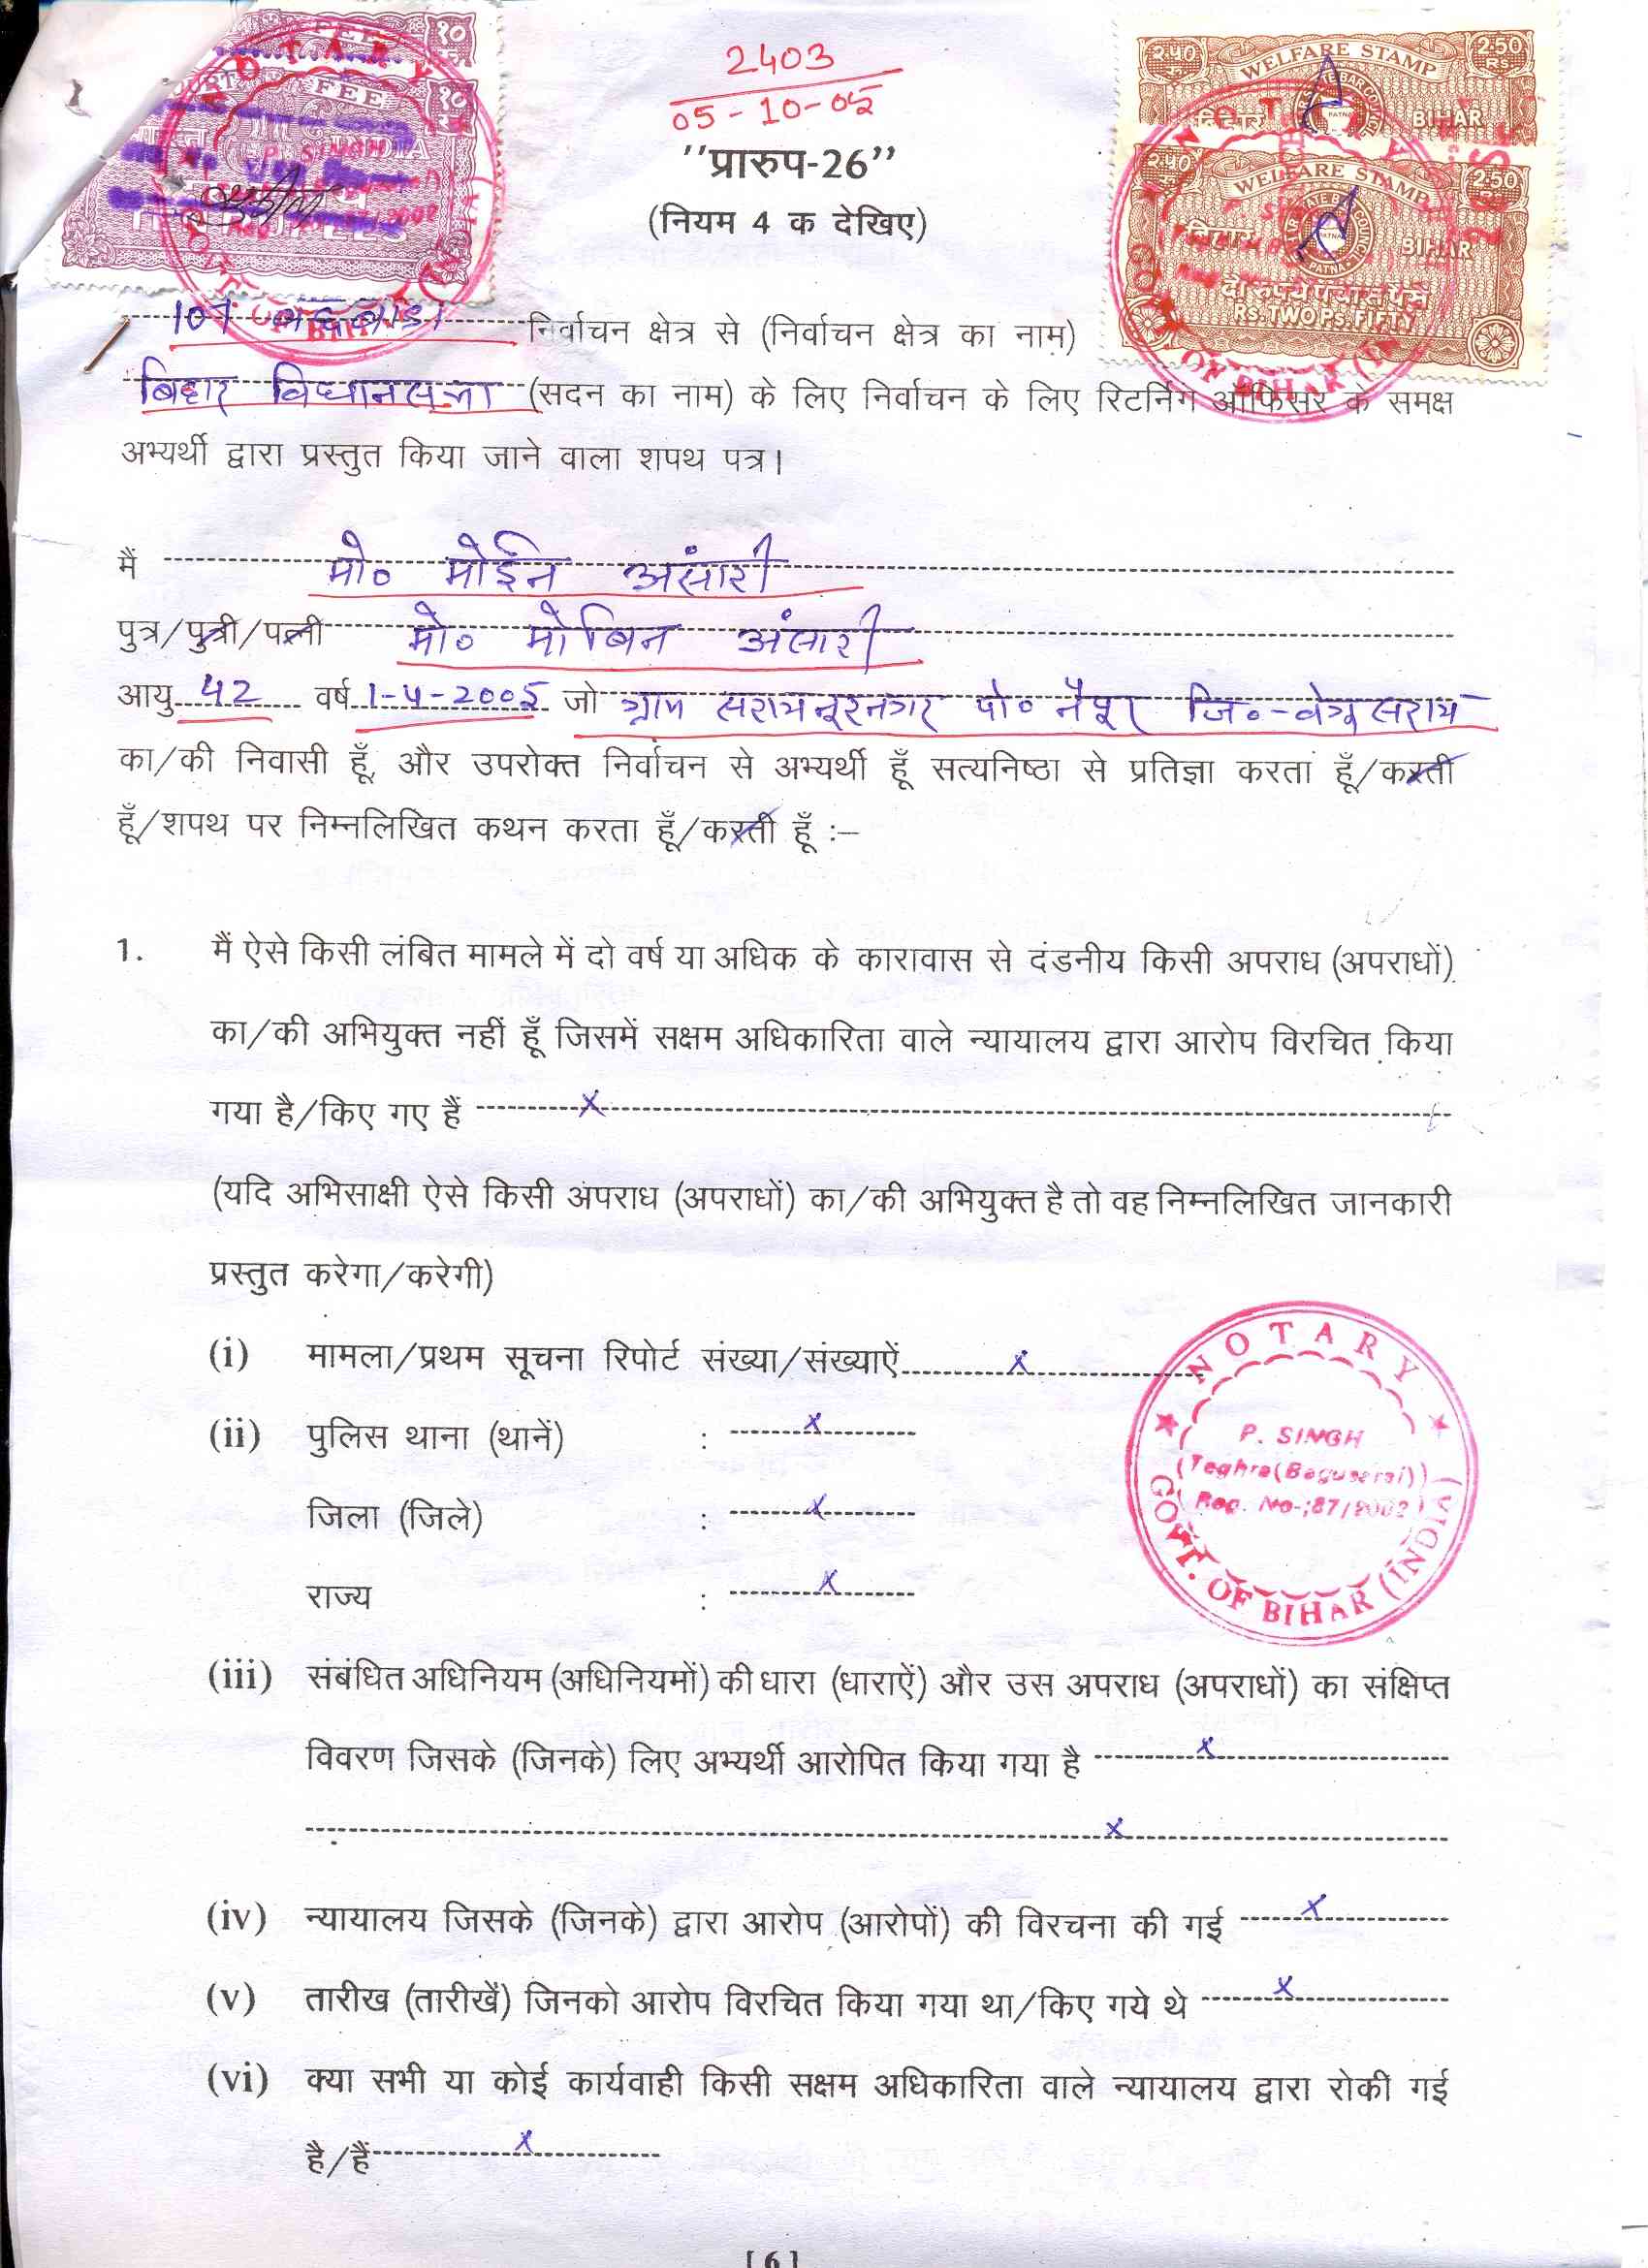 2403
05-10-05
"प्रारुप-26"
(नियम 4 क देखिए)
WELFARE STAMP
BIHAR
2.50 Rs.
WELFARE STAMP
2.50
बिहार BIHAR
दो रूपये पचास पैसे
RS. TWO PS. FIFTY
FEE
107 बरौनी निर्वाचन क्षेत्र से (निर्वाचन क्षेत्र का नाम)
बिहार विधानसभा (सदन का नाम) के लिए निर्वाचन के लिए रिटर्निंग ऑफिसर के समक्ष
अभ्यर्थी द्वारा प्रस्तुत किया जाने वाला शपथ पत्र।
मैं मो० मोईन अंसारी
पुत्र/पुत्री/पत्नी मो० मोबिन अंसारी
आयु 42 वर्ष 1-4-2005 जो ग्राम सरायनूरनगर पो० नैपुर जि०-बेगूसराय
का/की निवासी हूँ, और उपरोक्त निर्वाचन से अभ्यर्थी हूँ सत्यनिष्ठा से प्रतिज्ञा करता हूँ/करती
हूँ/शपथ पर निम्नलिखित कथन करता हूँ/करती हूँ :–
1. मैं ऐसे किसी लंबित मामले में दो वर्ष या अधिक के कारावास से दंडनीय किसी अपराध (अपराधों)
का/की अभियुक्त नहीं हूँ जिसमें सक्षम अधिकारिता वाले न्यायालय द्वारा आरोप विरचित किया
गया है/किए गए हैं x
(यदि अभिसाक्षी ऐसे किसी अपराध (अपराधों) का/की अभियुक्त है तो वह निम्नलिखित जानकारी
प्रस्तुत करेगा/करेगी)
(i) मामला/प्रथम सूचना रिपोर्ट संख्या/संख्याऐं x
(ii) पुलिस थाना (थानें) : x
जिला (जिले) : x
राज्य : x
NOTARY
P. SINGH
(Teghra(Begusarai))
Reg. No-;87/2002
GOVT. OF BIHAR (INDIA)
(iii) संबंधित अधिनियम (अधिनियमों) की धारा (धाराऐं) और उस अपराध (अपराधों) का संक्षिप्त
विवरण जिसके (जिनके) लिए अभ्यर्थी आरोपित किया गया है x
x
(iv) न्यायालय जिसके (जिनके) द्वारा आरोप (आरोपों) की विरचना की गई x
(v) तारीख (तारीखें) जिनको आरोप विरचित किया गया था/किए गये थे x
(vi) क्या सभी या कोई कार्यवाही किसी सक्षम अधिकारिता वाले न्यायालय द्वारा रोकी गई
है/हैं x
[6]